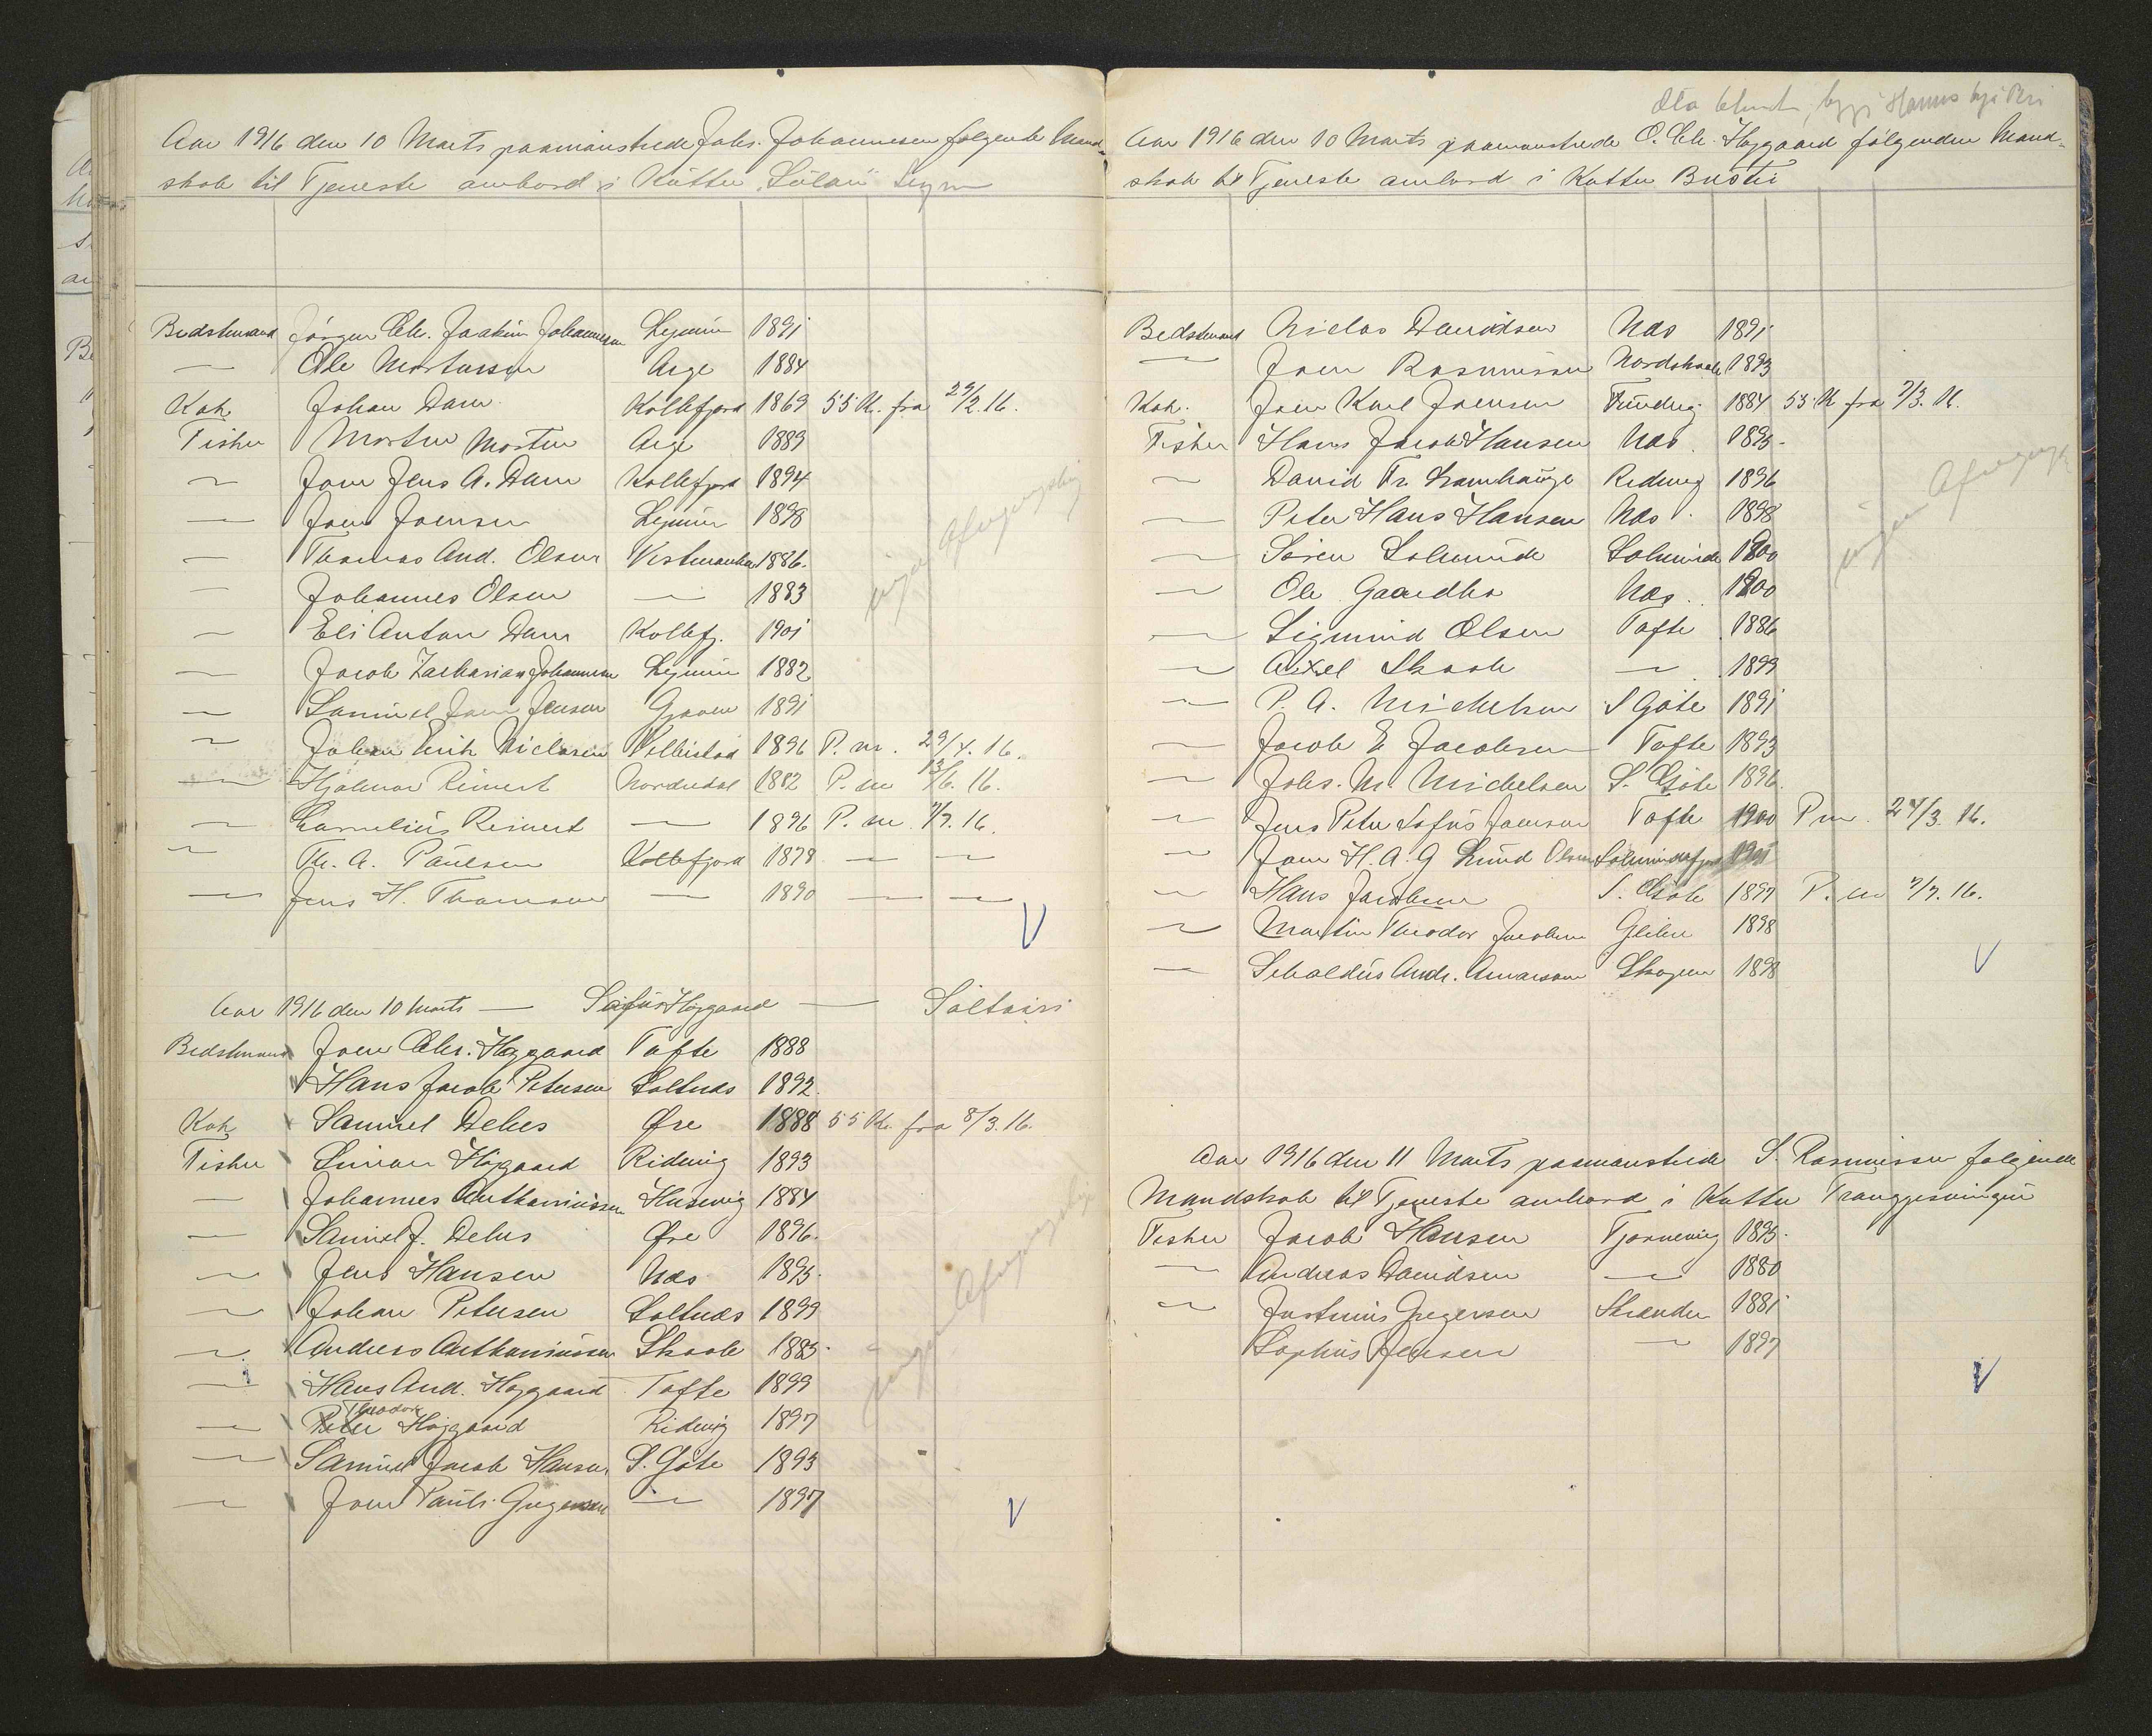 Aar 1916 den 10 Marts paamønstrede Johs. Johannesen følgende Mand-
skab til Tjeneste ombord i Kutter "Sulan"
Bedstemand Jørgen Chr. Joakim Johannesen Lejnum 1891
— Ole Mortensen Arge 1884
Kok Johan Dam Kollefjord 1869 55 Kr. fra 29/2.16.
Fisker Morten Morten Arge 1889
— Joen Jens A. Dam Kollefjord 1894
— Joen Joensen Lejnum 1898
— Thomas And. Olsen Vestmanhav 1886.
— Johannes Olsen — 1883
— Eli Anton Dam Kollefj. 1901
— Jacob Zacharias Johannesen Lejnum 1882
— Samuel Joen Jensen Gjoven 1891
— Johan Erik Niclasen Velbestad 1896 P. m. 29/4.16.
— Hjalmar Reinert Nordredal 1882 P. m 13/6.16.
— Cornelius Reinert — 1896 P. m. 7/7.16.
— Th. A. Paulsen Kollefjord 1878 — —
— Jens H. Thomsen — 1890 — —
V
Aar 1916 den 10 Marts — Sofus Høggaard — Saltoiri
Bedstemand Joen Chr. Høggaard Tofte 1888
Hans Jacob Petersen Saltnæs 1892
Kok Samuel Debes Øre 1888 55 Kr. fra 8/3.16.
Fisker Simon Høgaard Ridevig 1893
— Johannes Anthoniussen Husevig 1884
— Samuel J. Debes Øre 1896.
— Jens Hansen Næs 1895.
— Johan Petersen Saltnæs 1899
— Andreas Anthoniussen Skaale 1885.
— Hans And. Høggaard Tofte 1899
— Theodor Høggaard Ridevig 1897
— Samuel Jacob Hansen S. Gøte 1893
— Joen Pauli Gregersen — 1897
V
Aar 1916 den 10 Marts paamønstrede O. Chr. Høggaard følgenden Mand-
skab til Tjeneste ombord i Kutter Brestir
Bedstemand Niclas Davidsen Næs 1891
— Joen Rasmussen Nordskaale 1893
Kok. Joen Karl Joensen Funding 1884 55 Kr fra 7/3.16.
Fisker Hans Jacob Hansen Næs. 1895.
— David Fr. Lamhauge Redevig 1896
— Peter Hans Hansen Næs. 1898
— Søren Solmunde Solmunde 1900
— Ole Gaardbo Næs. 1900
— Sigmund Olsen Tofte 1886
— Axel Skaale — 1899
— P. A. Michelsen S Gøte 1891
— Jacob E Jacobsen Tofte 1893
— Johs. M. Michelsen S. Gøte 1896.
— Jens Peter Sofus Joensen Tofte 1900 P m. 24/3.16.
— Joen H. A. G Lund Olsen Solmundefjord 1901
— Hans Jacobsen S. Gøte 1897 P. m 7/7.16.
— Martin Theodor Jacobsen Glibre 1898
— Sebaldus Andr. Amarson Skopen 1898
V
Aar 1916 den 11 Marts paamønstrede S. Rasmussen følgende
Mandskab til Tjeneste ombord i Kutter Trangjisvaagur
Fisker Jacob Hansen Tjørnevig 1895.
— Andreas Davidsen — 1880
— Justinus Gregersen Strænder 1881
Sophus Jensen — 1897
V